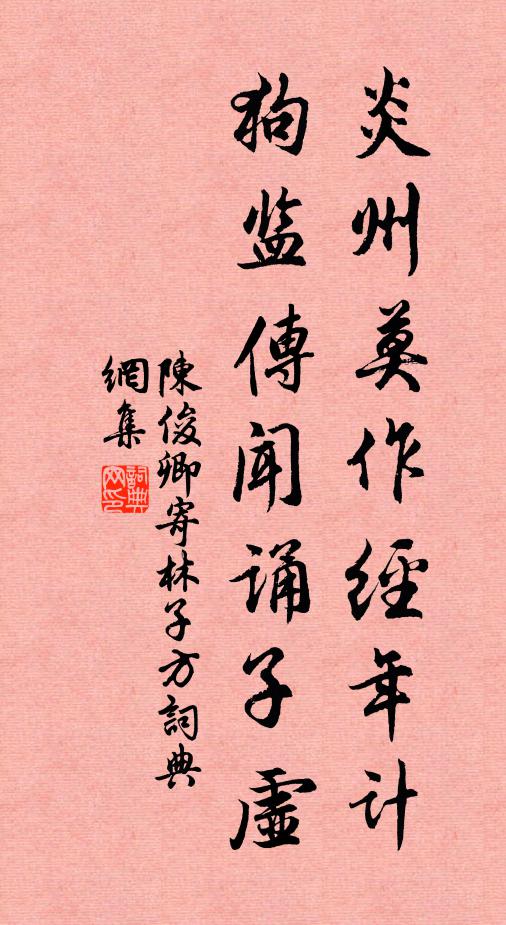 炎州莫作經年計
狗监傳闻诵子虛
陳俊卿寄林子方詞典
網集
詞典網印